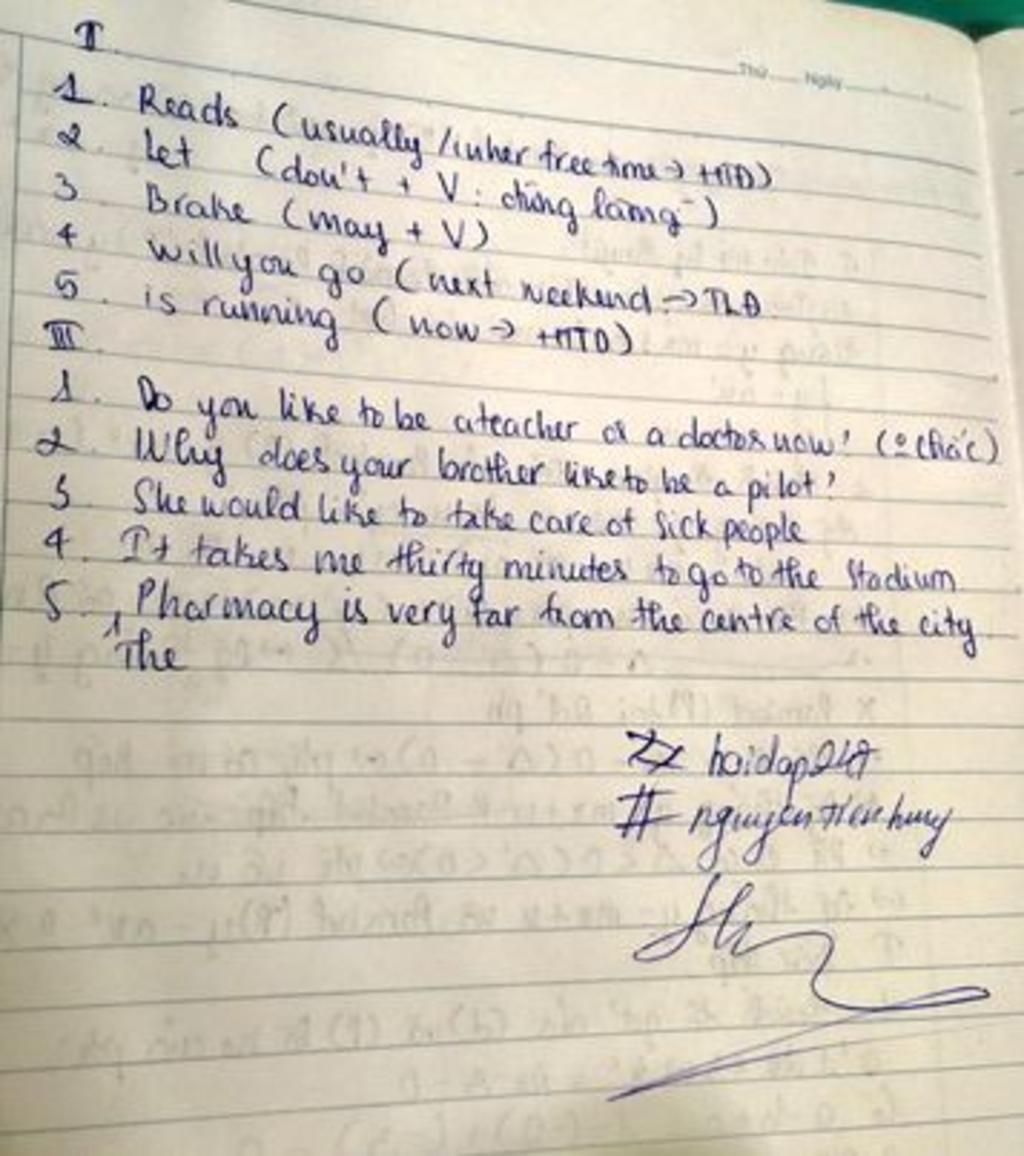 I.
Thứ Ngày
1. Reads (usually / in her free time → HTĐ)
2. Let (don't + V: đừng làm gì)
3 Brake (may + V)
4 Will you go (next weekend → TLĐ
5. is running (now → HTTD)
III
1. Do you like to be a teacher or a doctor now? (o chắc)
2. Why does your brother like to be a pilot?
3 She would like to take care of sick people
4. It takes me thirty minutes to go to the stadium
5. Pharmacy is very far from the centre of the city
The
hoidap247
# nguyentienhuy